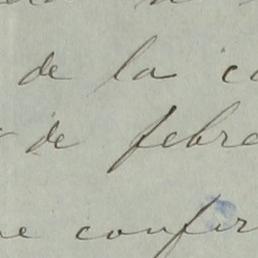 de la
de febre
confir